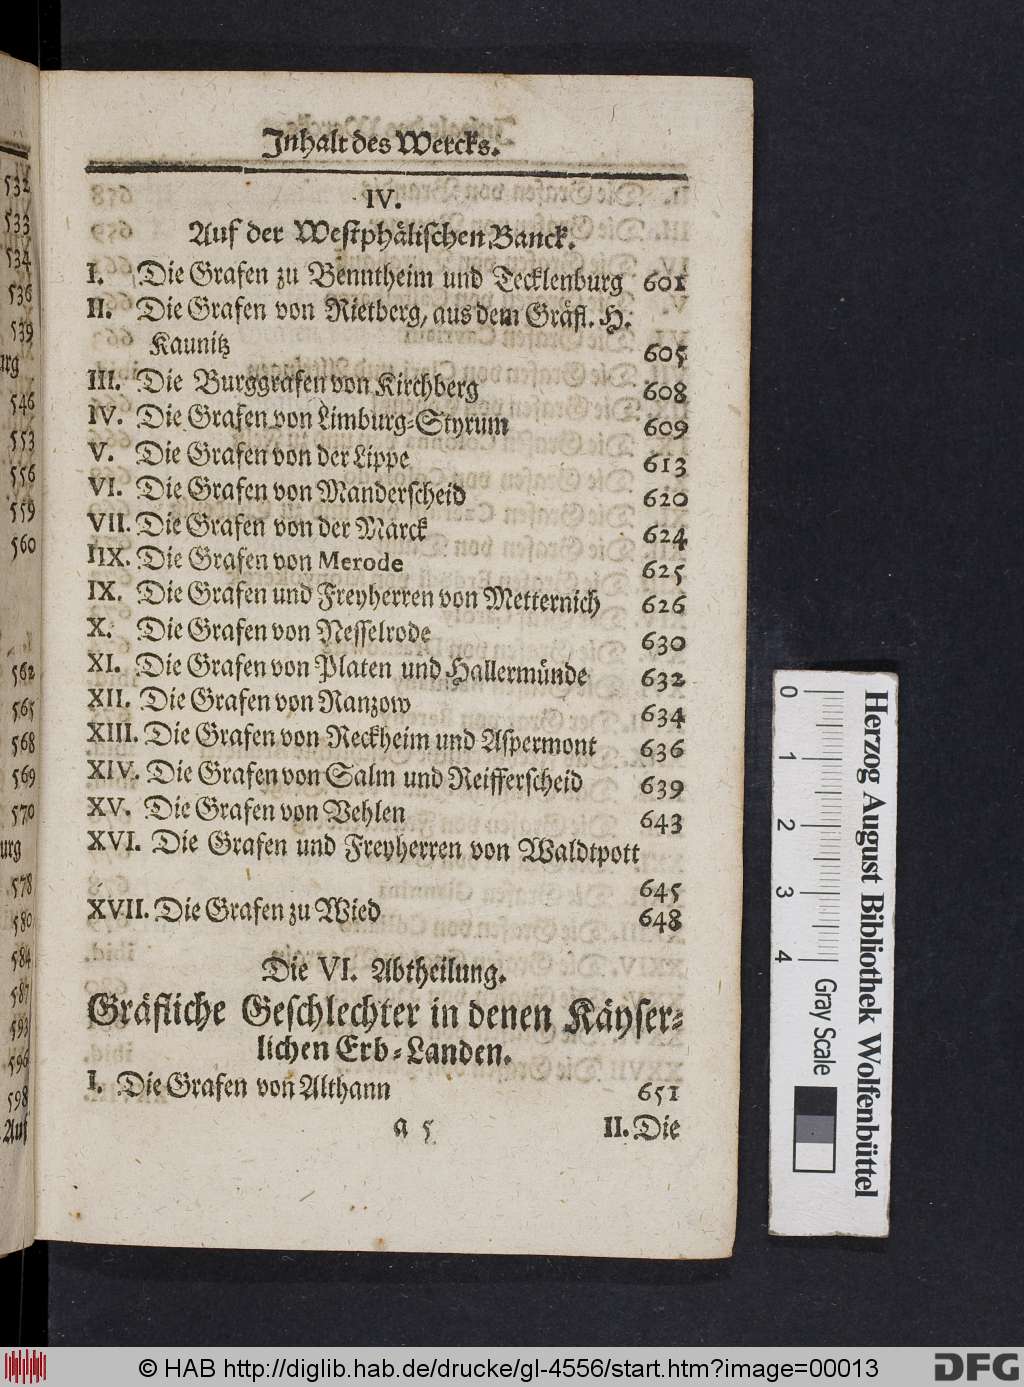 Inhalt des Wercks.
IV.
Auf der Westphälischen Banck.
I. Die Grafen zu Benntheim und Tecklenburg 601
II. Die Grafen von Rietberg, aus dem Gräfl. H.
Kaunitz 605
III. Die Burggrafen von Kirchberg 608
IV. Die Grafen von Limburg-Styrum 609
V. Die Grafen von der Lippe 613
VI. Die Grafen von Manderscheid 620
VII. Die Grafen von der Marck 624
IIX. Die Grafen von Merode 625
IX. Die Grafen und Freyherren von Metternich 626
X. Die Grafen von Nesselrode 630
XI. Die Grafen von Platen und Hallermünde 632
XII. Die Grafen von Ranzow 634
XIII. Die Grafen von Reckheim und Aspermont 636
XIV. Die Grafen von Salm und Reifferscheid 639
XV. Die Grafen von Vehlen 643
XVI. Die Grafen und Freyherren von Waldtpott
645
XVII. Die Grafen zu Wied 648
Die VI. Abtheilung.
Gräfliche Geschlechter in denen Käyser-
lichen Erb-Landen.
I. Die Grafen von Althann 651
a 5 II. Die
532
533
534
536
539
urg
546
553
556
559
560
562
565
568
569
570
urg
578
580
584
587
593
596
598
Auf
0 1 2 3 4
Gray Scale
Herzog August Bibliothek Wolfenbüttel
© HAB http://diglib.hab.de/drucke/gl-4556/start.htm?image=00013
DFG